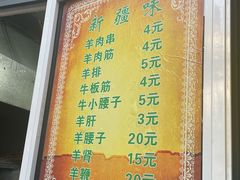 新疆味
羊肉串 4元
羊肉筋 4元
羊排 5元
牛板筋 4元
牛小腰子 5元
羊肝 3元
羊腰子 20元
羊肾 15元
羊鞭 20元